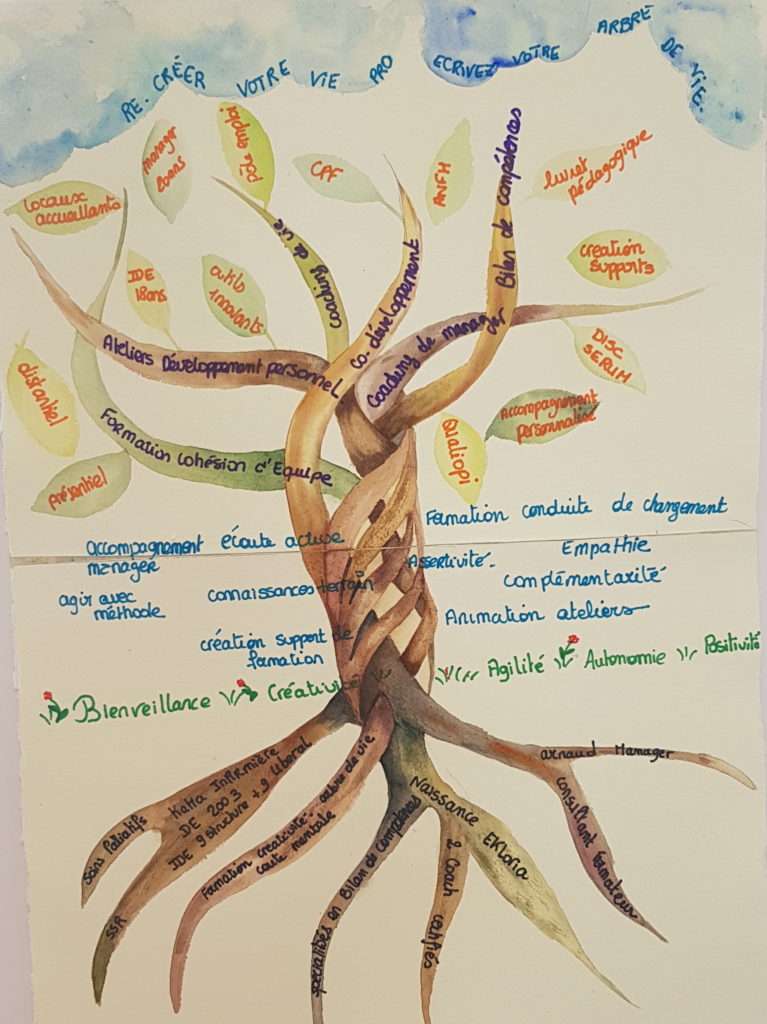 RE.CRÉER VOTRE VIE PRO ECRIVEZ VOTRE ARBRE DE VIE.
manager
pôle emploi
CPF
ANFH
livret
pédagogique
locaux
accueillants
IDE
18ans
création
supports
DISC
distantiel
présentiel
Qualiopi
accompagnement
personnalisé
Coaching de vie
Co.développement
Bilan de compétences
Coaching de manager
Ateliers Développement personnel
Formation Cohésion d'Equipe
Formation conduite de changement
accompagnement
manager
écoute active
Assertivité.
Empathie
agir avec
méthode
connaissances terrain
complémentarité
création support de
formation
Animation ateliers
Bienveillance
Créativi
Agilité
Autonomie
Positivité
Soins Palliatifs
SSR
Katia Infirmière
DE 2003
IDE 9 structure + 9 libéral
Formation créativité: arbre de vie
carte mentale
spécialisés en Bilan de compétences
2 Coach certifiés
Naissance EKloria
arnaud Manager
consultant formateur